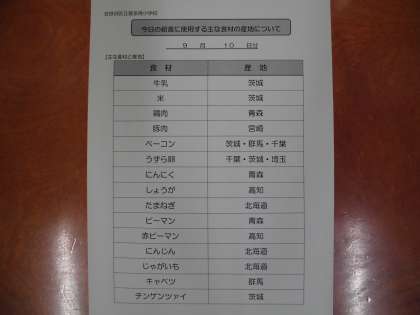 今日の給食に使用する主な食材の産地について
9 月 10 日分
【主な食材と産地】
食 材 産 地
牛乳 茨城
米 茨城
鶏肉 青森
豚肉 宮崎
ベーコン 茨城・群馬・千葉
うずら卵 千葉・茨城・埼玉
にんにく 青森
しょうが 高知
たまねぎ 北海道
ピーマン 青森
赤ピーマン 高知
にんじん 北海道
じゃがいも 北海道
キャベツ 群馬
チンゲンツァイ 茨城